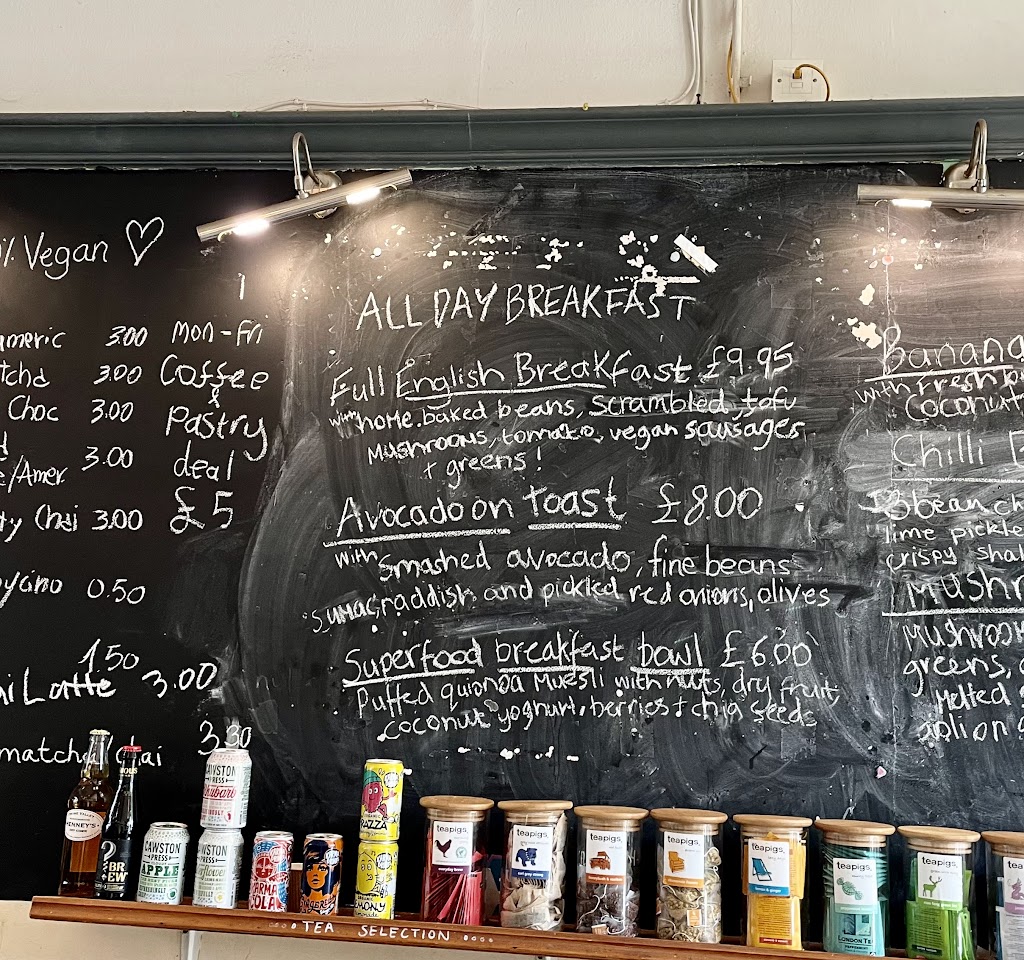 Vegan
meric 3.00
tcha 3.00
Choc 3.00
e/Amer 3.00
ty Chai 3.00
cino 0.50
1.50
Latte 3.00
matcha chai 3.30
1
Mon-Fri
Coffee
&
Pastry
deal
£5
ALL DAY BREAKFAST
Full English Breakfast £9.95
with home.baked beans, scrambled tofu
Mushrooms, tomato, vegan sausages
+ greens!
Avocado on toast £8.00
with smashed avocado, fine beans
sumac, raddish and pickled red onions, olives
Superfood breakfast bowl £6.00
Puffed quionoa Muesli with nuts, dry fruit,
coconut yoghurt, berries + chia seeds
Banana
with fresh
coconut
Chilli
3 bean ch
lime pickle
crispy shal
Mushr
Mushroom
greens,
Melted
onion
CAWSTON
PRESS
Rhubarb
CAWSTON
PRESS
APPLE
CAWSTON
PRESS
KARMA
COLA
GINGER
RAZZA
LEMONY
BR
EW
teapigs.
teapigs.
teapigs.
teapigs.
teapigs.
teapigs.
LONDON TE
teapigs.
TEA SELECTION